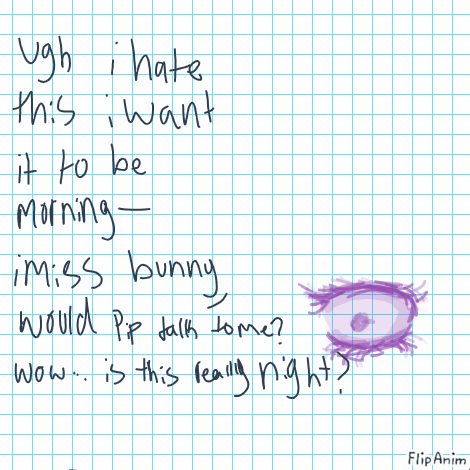 ugh i hate
this i want
it to be
morning—
i miss bunny,
would Pip talk to me?
wow.. is this really night?
FlipAnim